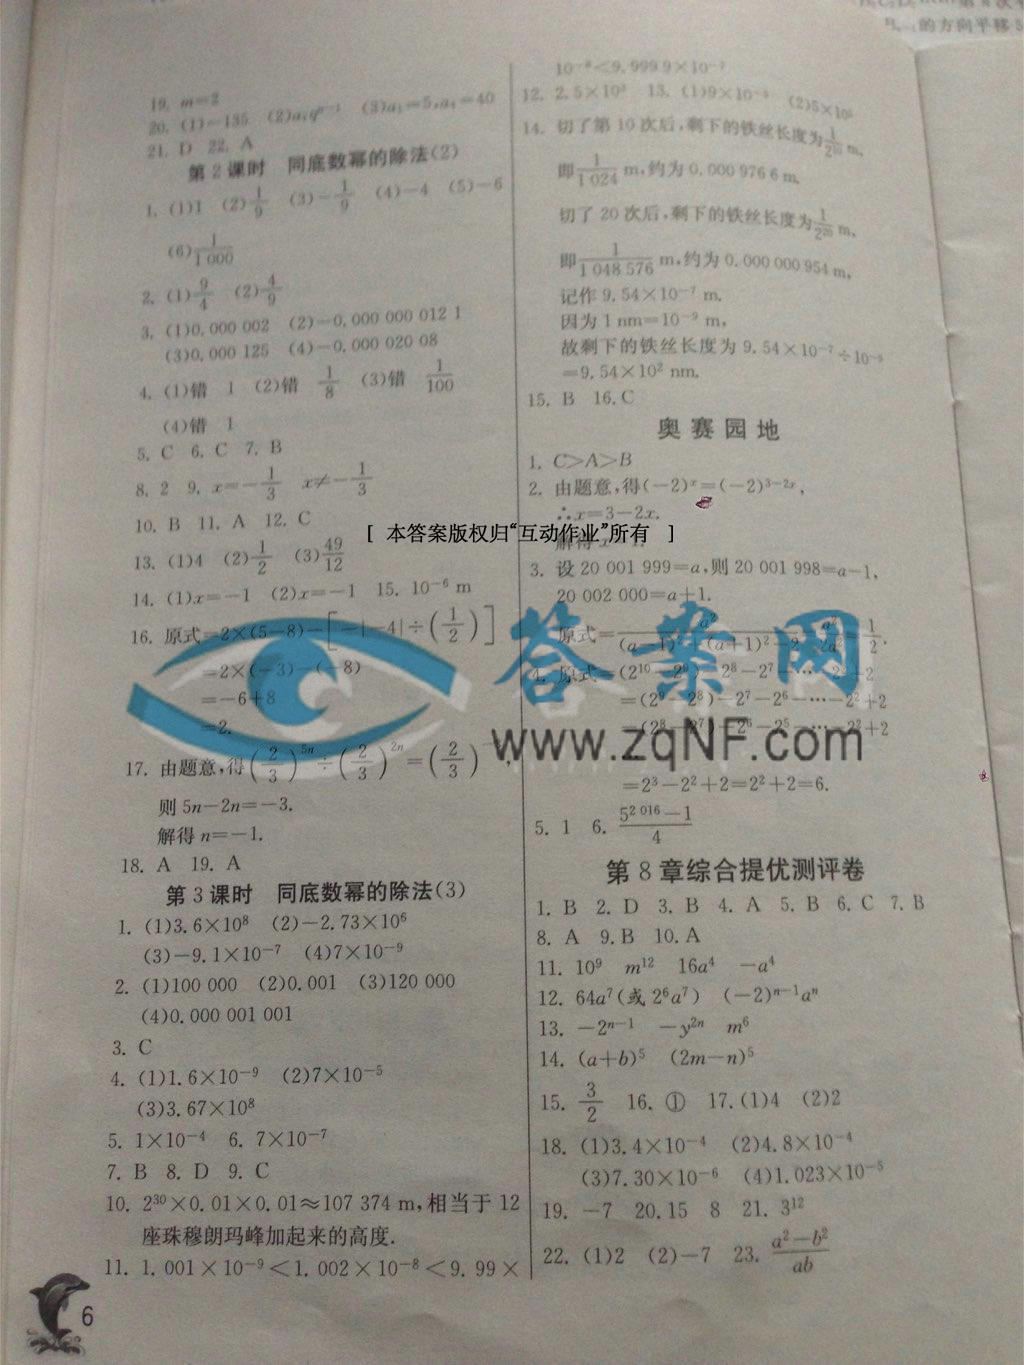 的方向平移5
19. m=2
20. (1)-135 (2)a₁qⁿ⁻¹ (3)a₁=5,a₄=40
21. D 22. A
第2课时 同底数幂的除法(2)
1. (1)1 (2)1/9 (3)-1/9 (4)-4 (5)-6
(6)1/1 000
2. (1)9/4 (2)4/9
3. (1)0.000 002 (2)-0.000 000 012 1
(3)0.000 125 (4)-0.000 020 08
4. (1)错 1 (2)错 1/8 (3)错 1/100
(4)错 1
5. C 6. C 7. B
8. 2 9. x=-1/3 x≠-1/3
10. B 11. A 12. C
13. (1)4 (2)1/2 (3)49/12
14. (1)x=-1 (2)x=-1 15. 10⁻⁶ m
16. 原式=2×(5-8)-[-|-4|÷(1/2)]
=2×(-3)-(-8)
=-6+8
=2.
17. 由题意,得(2/3)⁵ⁿ÷(2/3)²ⁿ=(2/3)
则 5n-2n=-3.
解得 n=-1.
18. A 19. A
第3课时 同底数幂的除法(3)
1. (1)3.6×10⁸ (2)-2.73×10⁶
(3)-9.1×10⁻⁷ (4)7×10⁻⁹
2. (1)100 000 (2)0.001 (3)120 000
(4)0.000 001 001
3. C
4. (1)1.6×10⁻⁹ (2)7×10⁻⁵
(3)3.67×10⁸
5. 1×10⁻⁴ 6. 7×10⁻⁷
7. B 8. D 9. C
10. 2³⁰×0.01×0.01≈107 374 m,相当于 12
座珠穆朗玛峰加起来的高度.
11. 1.001×10⁻⁹<1.002×10⁻⁸<9.99×
6
10⁻⁸<9.999 9×10⁻⁷
12. 2.5×10³ 13. (1)9×10⁻⁴ (2)5×10⁵
14. 切了第 10 次后,剩下的铁丝长度为1/2¹⁰ m,
即1/1 024 m,约为 0.000 976 6 m.
切了 20 次后,剩下的铁丝长度为1/2²⁰ m,
即1/1 048 576 m,约为 0.000 000 954 m,
记作 9.54×10⁻⁷ m.
因为 1 nm=10⁻⁹ m,
故剩下的铁丝长度为 9.54×10⁻⁷÷10⁻⁹
=9.54×10² nm.
15. B 16. C
奥赛园地
1. C>A>B
2. 由题意,得(-2)ˣ=(-2)³⁻²ˣ,
∴x=3-2x.
[ 本答案版权归“互动作业”所有 ]
解得
3. 设 20 001 999=a,则 20 001 998=a-1,
20 002 000=a+1.
原式=a²/((a-1)²+(a+1)²-2)=a²/2a²=1/2.
4. 原式=(2¹⁰-2⁹)-2⁸-2⁷-…-2²+2
=(2⁹-2⁸)-2⁷-2⁶-…-2²+2
=(2⁸-2⁷)-2⁶-2⁵-…-2²+2
答案网
www.zqNF.com
=2³-2²+2=2²+2=6.
5. 1 6. (5²⁰¹⁶-1)/4
第8章综合提优测评卷
1. B 2. D 3. B 4. A 5. B 6. C 7. B
8. A 9. B 10. A
11. 10⁹ m¹² 16a⁴ -a⁴
12. 64a⁷(或 2⁶a⁷) (-2)ⁿ⁻¹aⁿ
13. -2ⁿ⁻¹ -y²ⁿ m⁶
14. (a+b)⁵ (2m-n)⁵
15. 3/2 16. ① 17. (1)4 (2)2
18. (1)3.4×10⁻⁴ (2)4.8×10⁻⁴
(3)7.30×10⁻⁶ (4)1.023×10⁻⁵
19. -7 20. 15 8 21. 3¹²
22. (1)2 (2)-7 23. (a²-b²)/ab